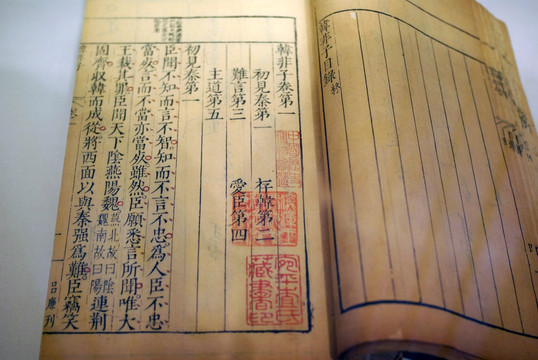 韓非子目錄終
韓非子卷第一
初見秦第一
存韓第二
難言第三
愛臣第四
主道第五
初見秦第一
臣聞不知而言不智知而不言不忠為人臣不忠
當死言而不當亦當死雖然臣願悉言所聞唯大
王裁其罪臣聞天下陰燕陽魏燕北故曰陰魏南故曰陽連荆
固齊收韓而成從將西面以與秦强為難臣竊笑
藏書印
呂應刊